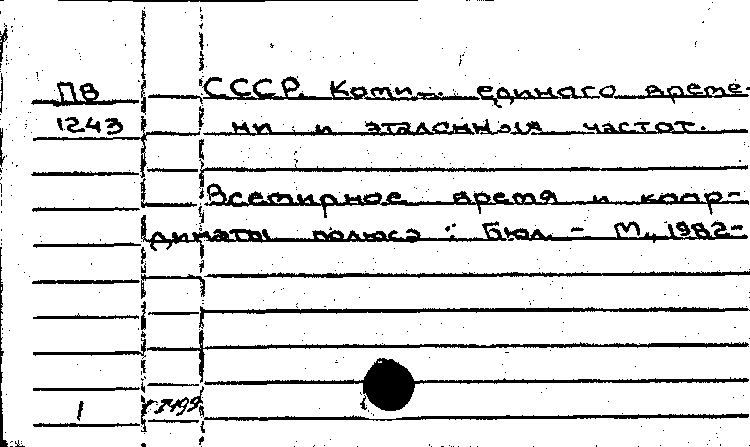 ПВ СССР. Коми-. единого време-
1243 ни и эталонных частот.
Всемирное время и коор-
динаты полюса : Бюл. - М., 1982-
1